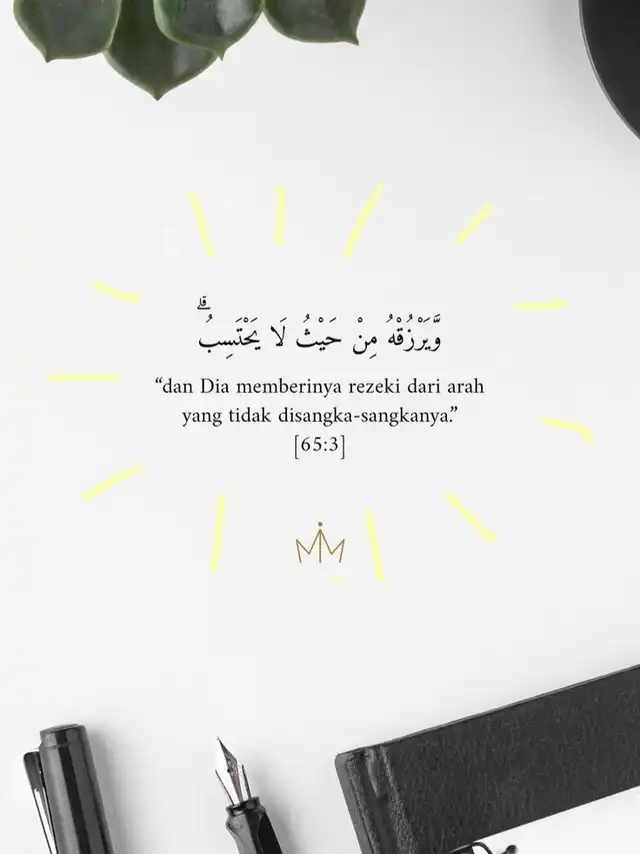 وَّيَرْزُقْهُ مِنْ حَيْثُ لَا يَحْتَسِبُ ۗ
“dan Dia memberinya rezeki dari arah
yang tidak disangka-sangkanya.”
[65:3]